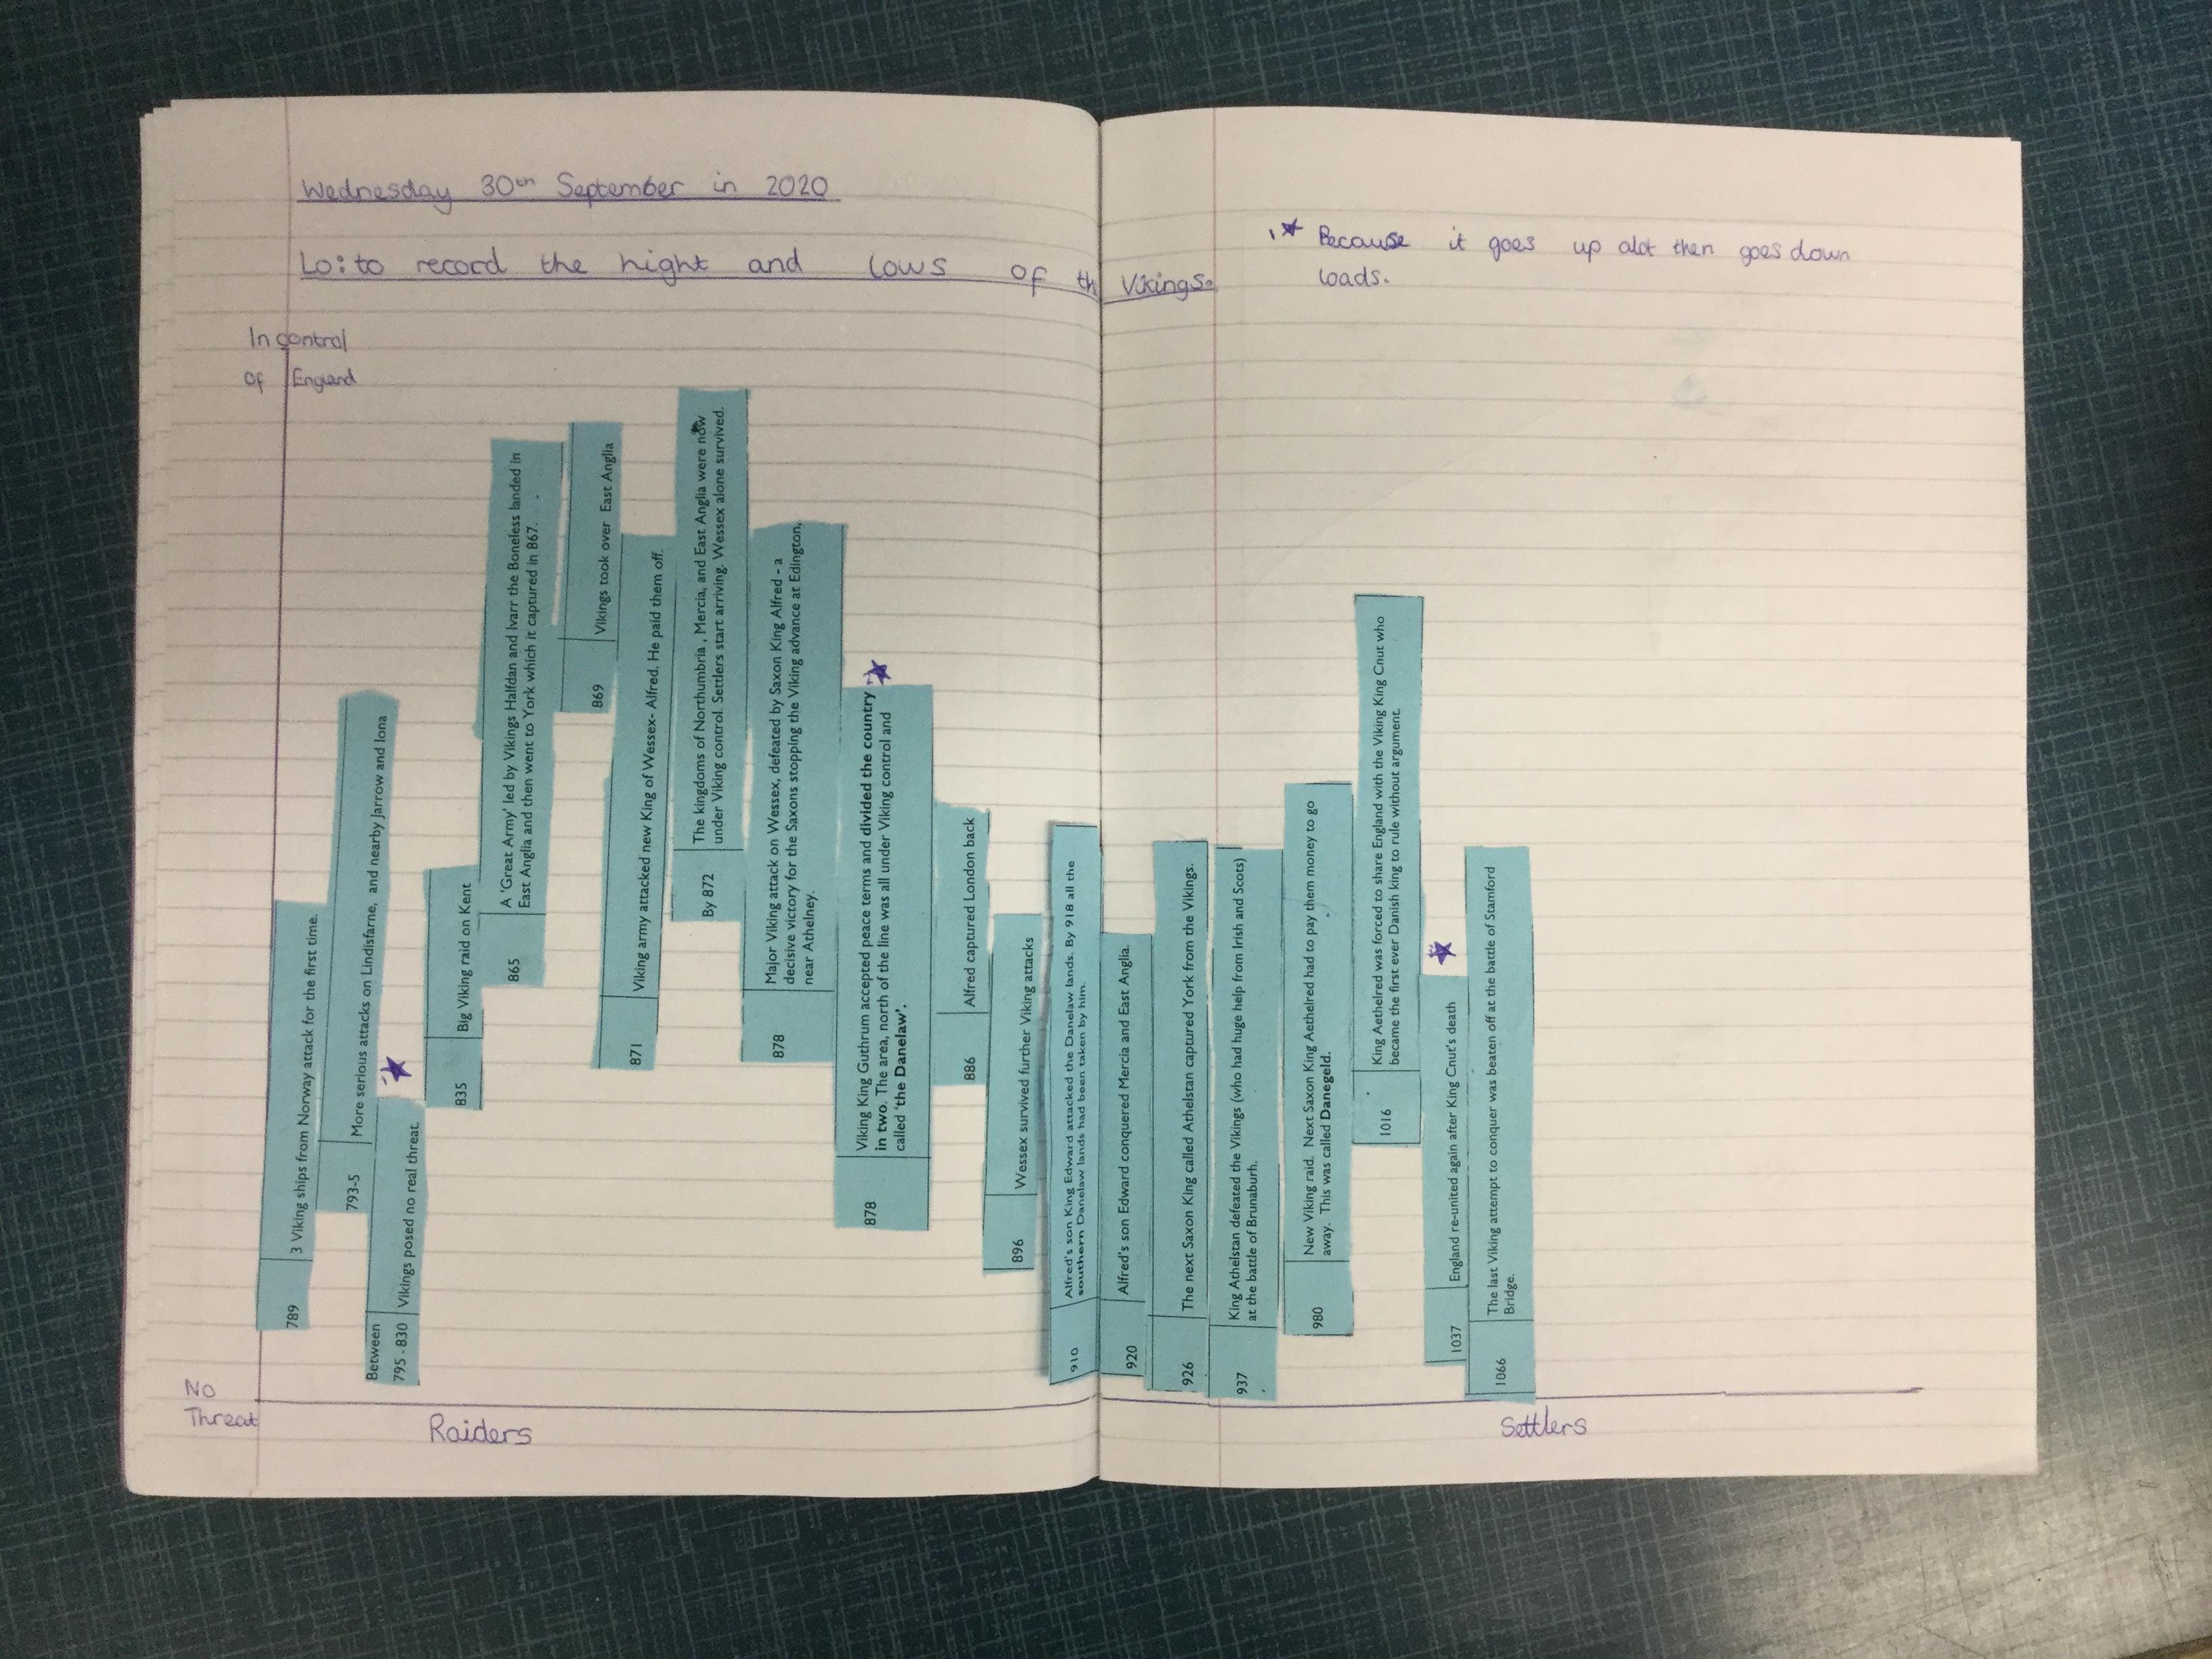 Wednesday 30th September in 2020
Lo: to record the hight and lows of th Vikings.
1★ Because it goes up alot then goes down
loads.
In control
Of England
789 3 Viking ships from Norway attack for the first time.
793-5 More serious attacks on Lindisfarne, and nearby Jarrow and Iona
Between
795 - 830 Vikings posed no real threat.
835 Big Viking raid on Kent
865 A 'Great Army' led by Vikings Halfdan and Ivarr the Boneless landed in
East Anglia and then went to York which it captured in 867.
869 Vikings took over East Anglia
871 Viking army attacked new King of Wessex- Alfred. He paid them off.
By 872 The kingdoms of Northumbria , Mercia, and East Anglia were now
under Viking control. Settlers start arriving. Wessex alone survived.
878 Major Viking attack on Wessex, defeated by Saxon King Alfred - a
decisive victory for the Saxons stopping the Viking advance at Edington,
near Athelney.
878 Viking King Guthrum accepted peace terms and divided the country
in two. The area, north of the line was all under Viking control and
called 'the Danelaw'.
886 Alfred captured London back
896 Wessex survived further Viking attacks
910 Alfred's son King Edward attacked the Danelaw lands. By 918 all the
southern Danelaw lands had been taken by him.
920 Alfred's son Edward conquered Mercia and East Anglia.
926 The next Saxon King called Athelstan captured York from the Vikings.
937 King Athelstan defeated the Vikings (who had huge help from Irish and Scots)
at the battle of Brunaburh.
980 New Viking raid. Next Saxon King Aethelred had to pay them money to go
away. This was called Danegeld.
1016 King Aethelred was forced to share England with the Viking King Cnut who
became the first ever Danish king to rule without argument.
1037 England re-united again after King Cnut's death
1066 The last Viking attempt to conquer was beaten off at the battle of Stamford
Bridge.
No
Threat
Raiders
Settlers